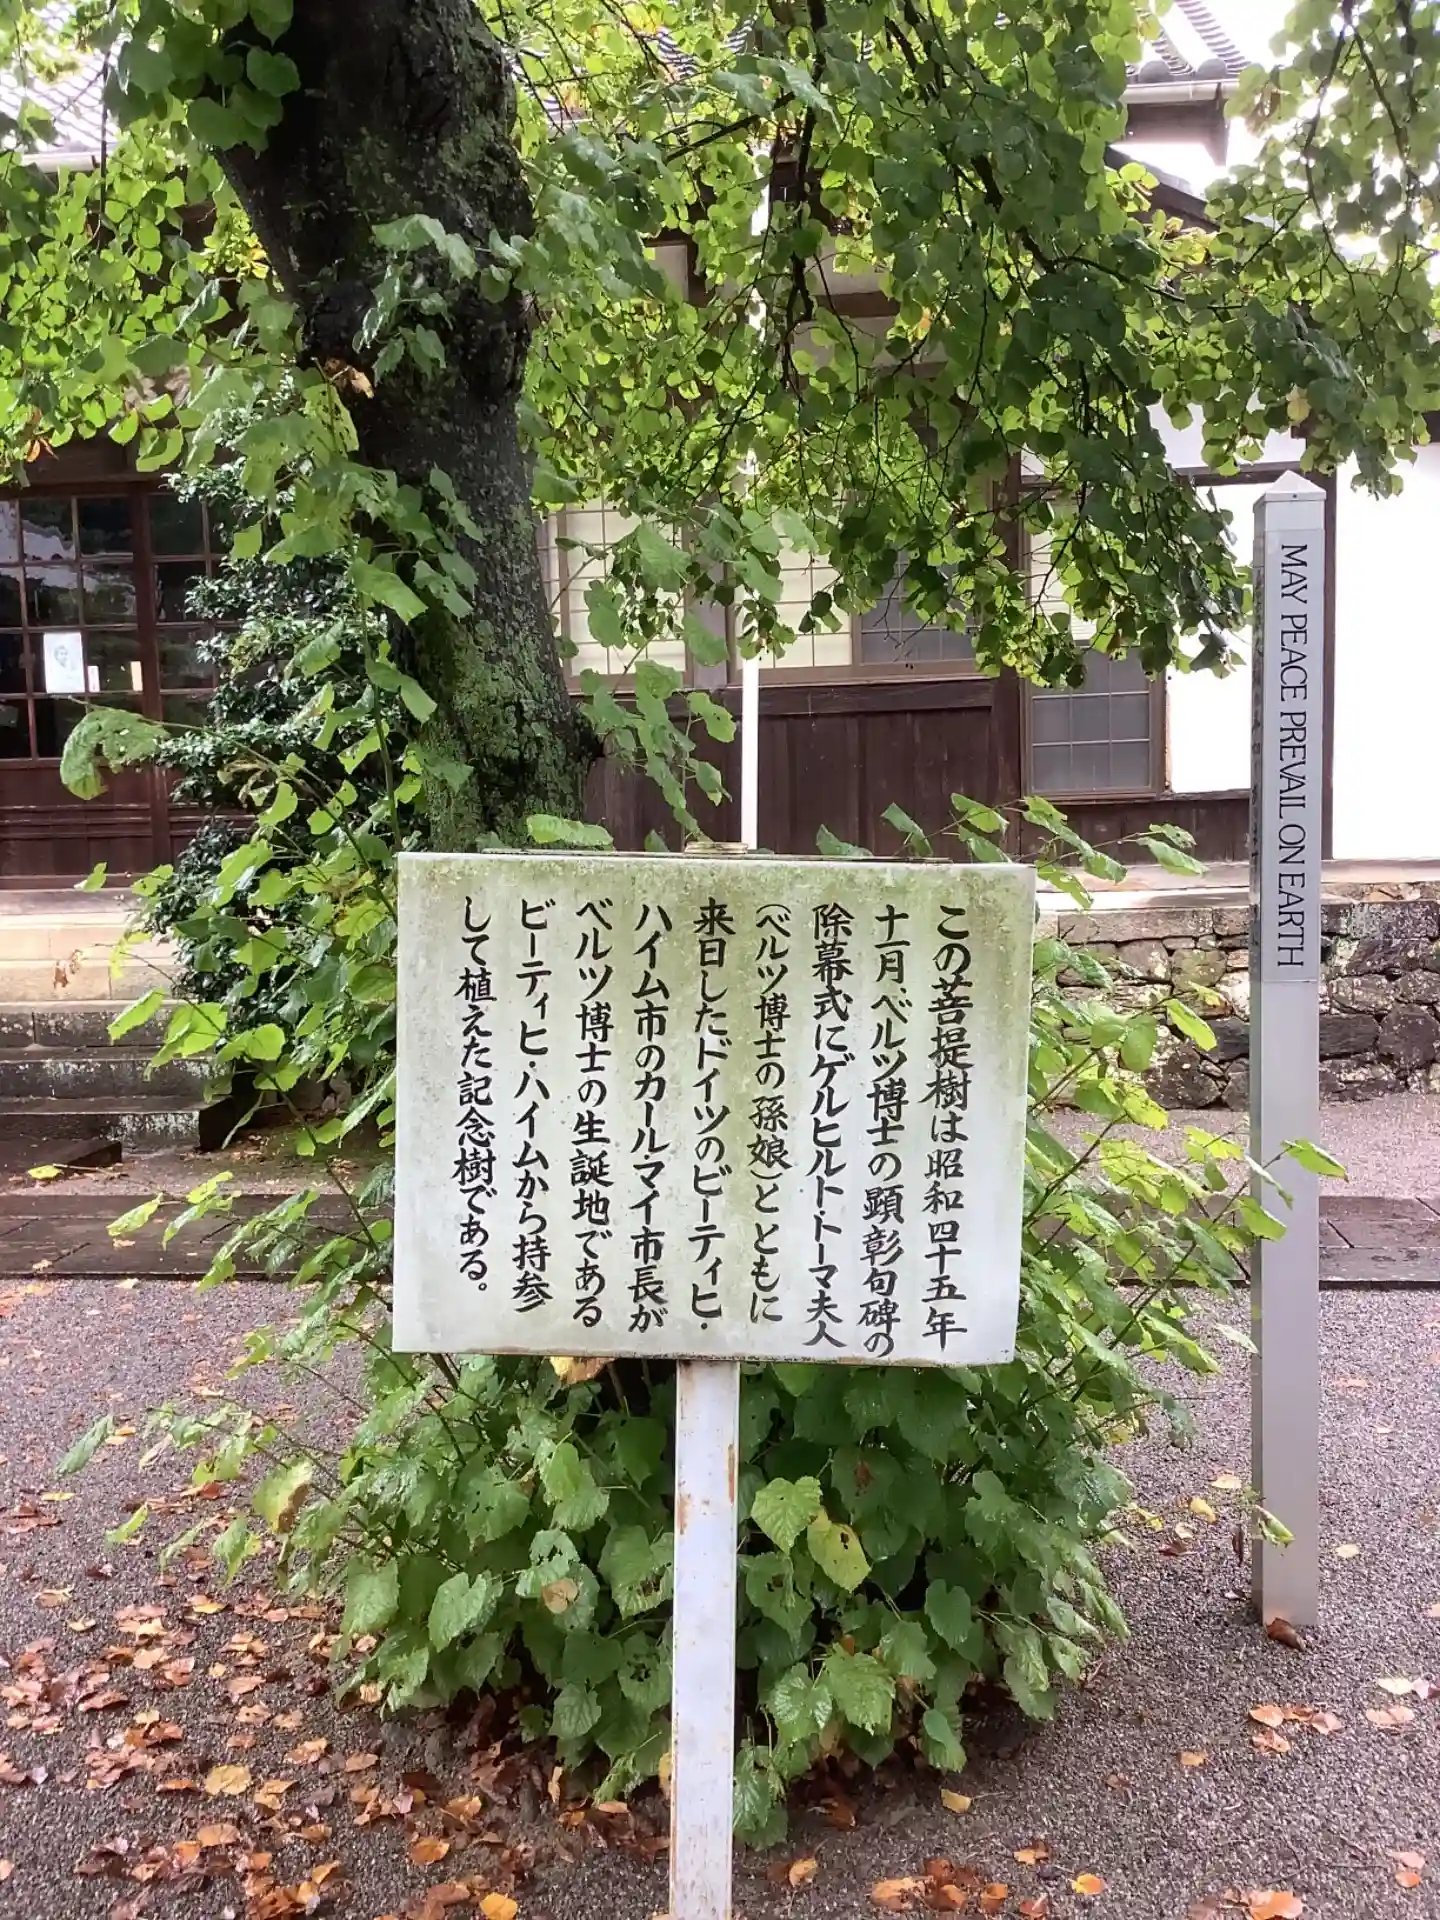 この菩提樹は昭和四十五年
十一月、ベルツ博士の顕彰句碑の
除幕式にゲルヒルト・トーマ夫人
(ベルツ博士の孫娘)とともに
来日したドイツのビーティヒ・
ハイム市のカール・マイ市長が
ベルツ博士の生誕地である
ビーティヒ・ハイムから持参
して植えた記念樹である。
MAY PEACE PREVAIL ON EARTH